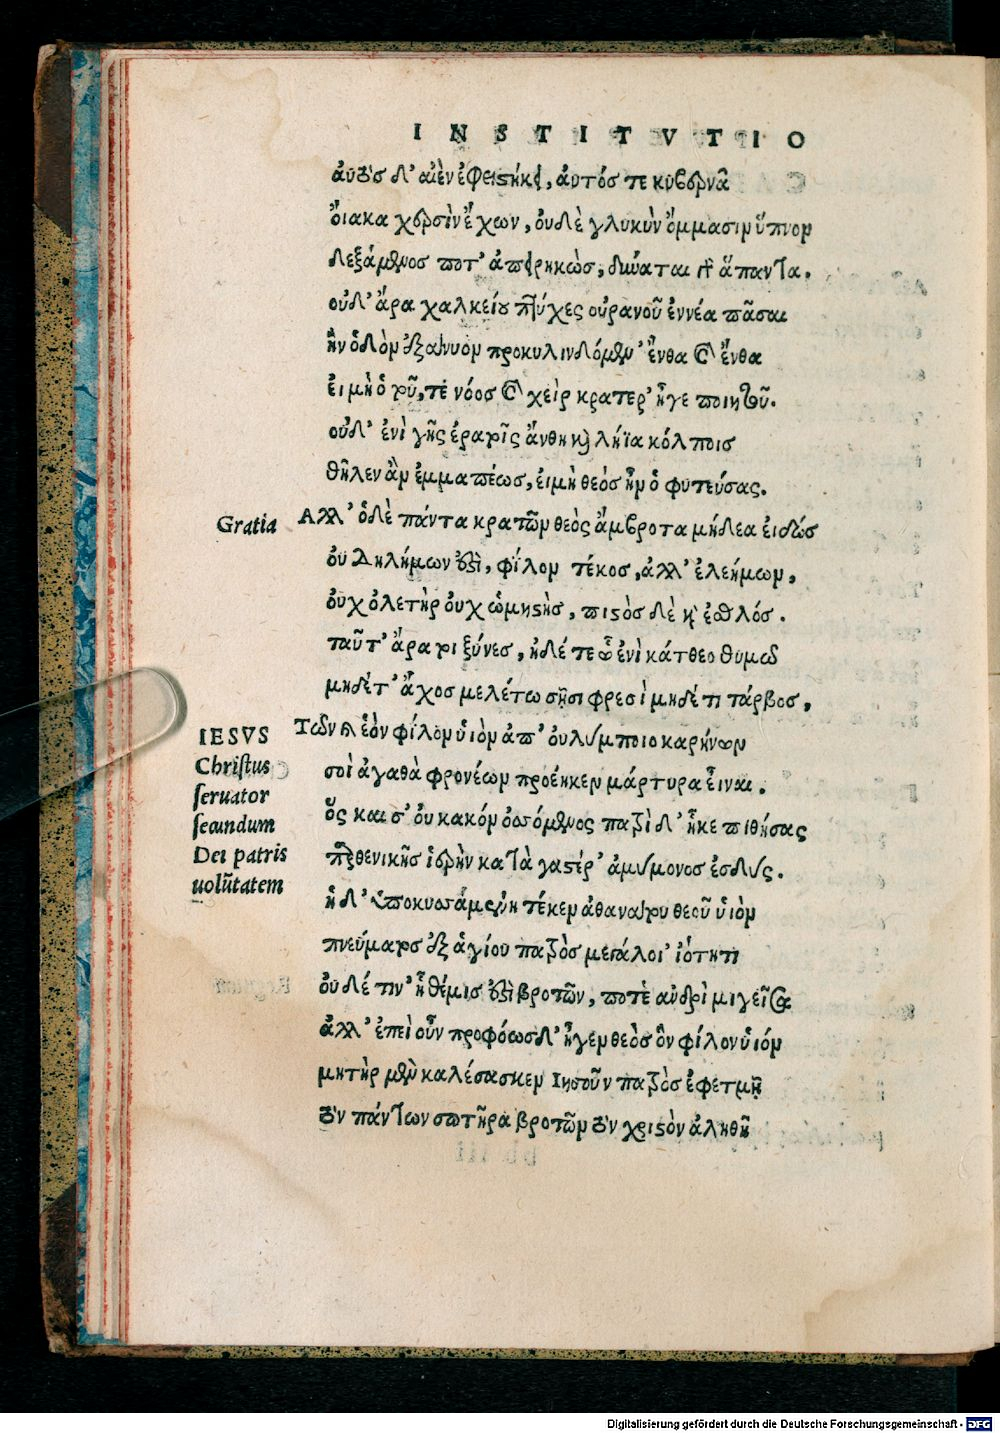 INSTITVTIO
ἀυτὸς δ' αἰὲν ἐφεστήκει, ἀυτός τε κυβερνᾶ
ὄιακα χερσὶν ἔχων, ὀυδὲ γλυκὺν ὄμμασιν ὕπνον
δεξάμενος ποτ' ἀπειρηκὼς, δύναται γὰρ ἅπαντα.
οὐδ' ἄρα χαλκείου πτύχες οὐρανοῦ ἐννέα πᾶσαι
ἣν ὁδὸν ἐξανυον προκυλινδόμεναι ἔνθα καὶ ἔνθα
ἐι μὴ ὁ τοῦ, τε νόος καὶ χεὶρ κρατερ' ἦγε ποιητοῦ.
οὐδ' ἐνὶ γῆς ἐρατοῖς ἄνθη καὶ λήϊα κόλποις
θῆλεν ἂν ἐμμαπέως, ἐιμὴ θεὸς ἦν ὁ φυτεύσας.
Gratia
Αλλ' ὁδὲ πάντα κρατῶν θεὸς ἄμβροτα μήδεα ἐιδώς
ὀυ Δηλήμων ἐστὶ, φίλον τέκος, ἀλλ' ἐλεήμων,
ὀυχ ὀλετὴρ ὀυχ ὠμηστὴς, πιστὸς δὲ καὶ ἐσθλός.
ταῦτ' ἄρα τοι ξύνες, ἠδέ τεῷ ἐνὶ κάτθεο θυμῶ
μηδέ τ' ἄχος μελέτω σῇσι φρεσὶ μηδέ τι τάρβος,
IESVS
Christus
seruator
secundum
Dei patris
uolũtatem
Τῶν δὴ ἑὸν φίλον ὑιὸν ἀπ' ὀυλύμποιο καρήνων
σοὶ ἀγαθὰ φρονέων προέηκεν μάρτυρα εἶναι.
ὅς καὶ σ' ὀυ κακὸν ὀσσόμενος πατρὶ δ' ἧκε πιθήσας
παρθενικῆς ἱερὴν κατὰ γαστέρ' ἀμύμονος ἐσδύς.
ἡ δ' ὑποκυσσάμενη τέκεν ἀθανάτου θεοῦ ὑιὸν
πνεύματος ἐξ ἁγίου πατρὸς μεγάλοι' ἰότητι
ὀυδέ τιν' ἣ θέμις ἐστὶ βροτῶν, ποτὲ ανδρὶ μιγεῖσα
ἀλλ' ἐπεὶ οὖν προφόωσδ' ἦγεν θεὸς ὃν φίλον ὑιόν
μητὴρ μὲν καλέσασκεν Ιησοῦν πατρὸς ἐφετμῇ
τὸν πάντων σωτῆρα βροτῶν τὸν χριστὸν ἀληθῆ
Digitalisierung gefördert durch die Deutsche Forschungsgemeinschaft - DFG